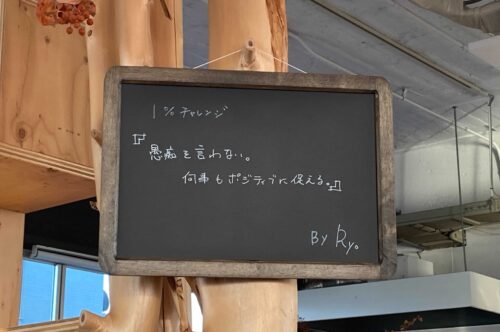 1%チャレンジ
『愚痴を言わない。
何事もポジティブに捉える。』
By Ryo